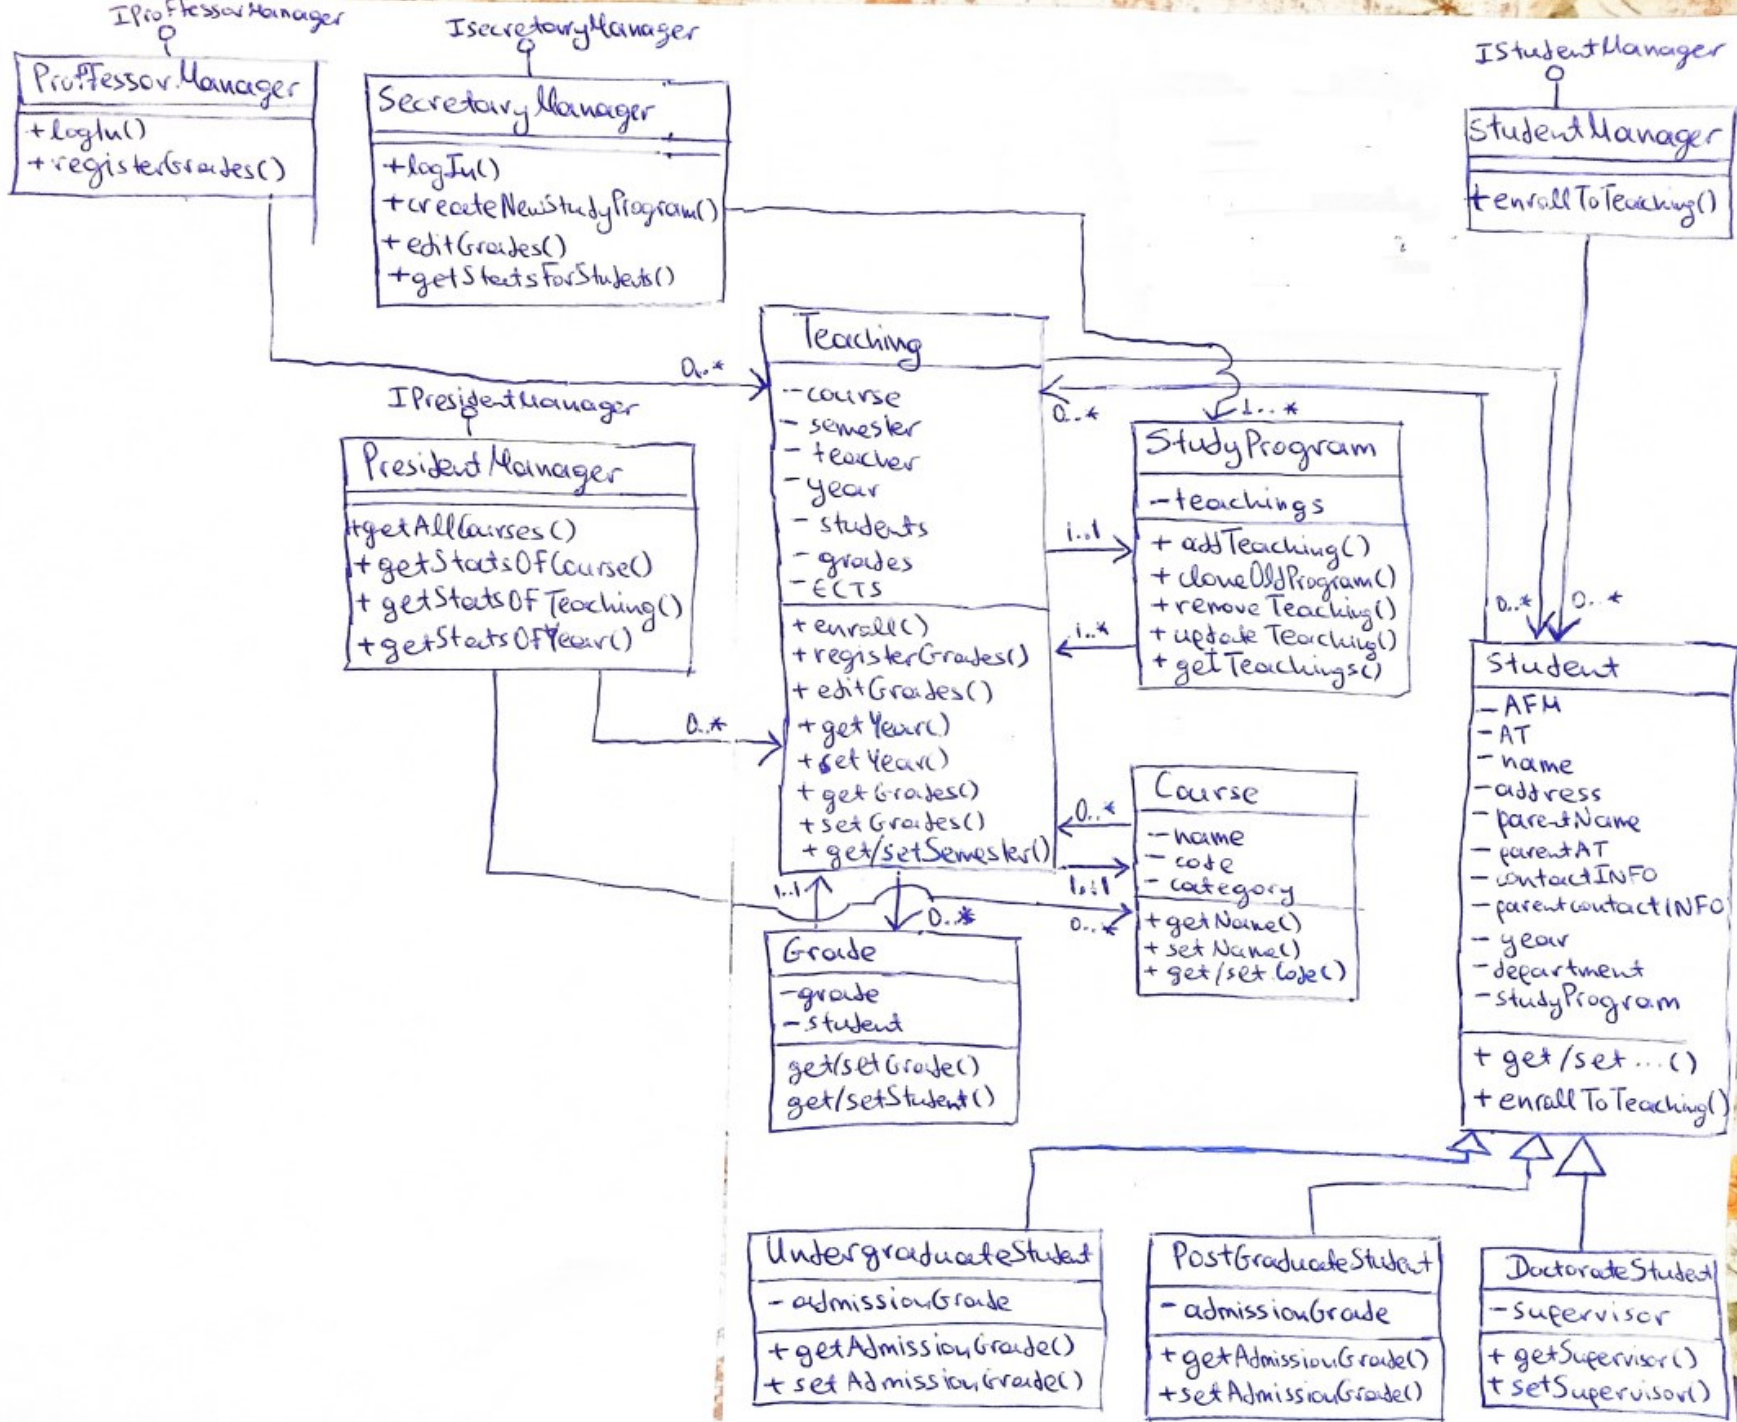 IProffessorManager
ProffessorManager
+logIn()
+registerGrades()
IsecretaryManager
SecretaryManager
+logIn()
+createNewStudyProgram()
+editGrades()
+getStatsForStudents()
IStudentManager
StudentManager
+enrollToTeaching()
0..*
IPresidentManager
PresidentManager
+getAllCourses()
+getStatsOfCourse()
+getStatsOfTeaching()
+getStatsOfYear()
0..*
Teaching
-course
-semester
-teacher
-year
-students
-grades
-ECTS
+enroll()
+registerGrades()
+editGrades()
+getYear()
+setYear()
+getGrades()
+setGrades()
+get/setSemester()
0..*
1..*
StudyProgram
-teachings
+addTeaching()
+cloneOldProgram()
+removeTeaching()
+updateTeaching()
+getTeachings()
1..1
1..*
Course
-name
-code
-category
+getName()
+setName()
+get/set Code()
0..*
1..1
0..*
1..1
0..*
Grade
-grade
-student
get/setGrade()
get/setStudent()
0..*
0..*
Student
-AFM
-AT
-name
-address
-parentName
-parentAT
-contactINFO
-parentcontactINFO
-year
-department
-studyProgram
+get/set...()
+enrollToTeaching()
UndergraduateStudent
-admissionGrade
+getAdmissionGrade()
+setAdmissionGrade()
PostGraduateStudent
-admissionGrade
+getAdmissionGrade()
+setAdmissionGrade()
DoctorateStudent
-supervisor
+getSupervisor()
+setSupervisor()